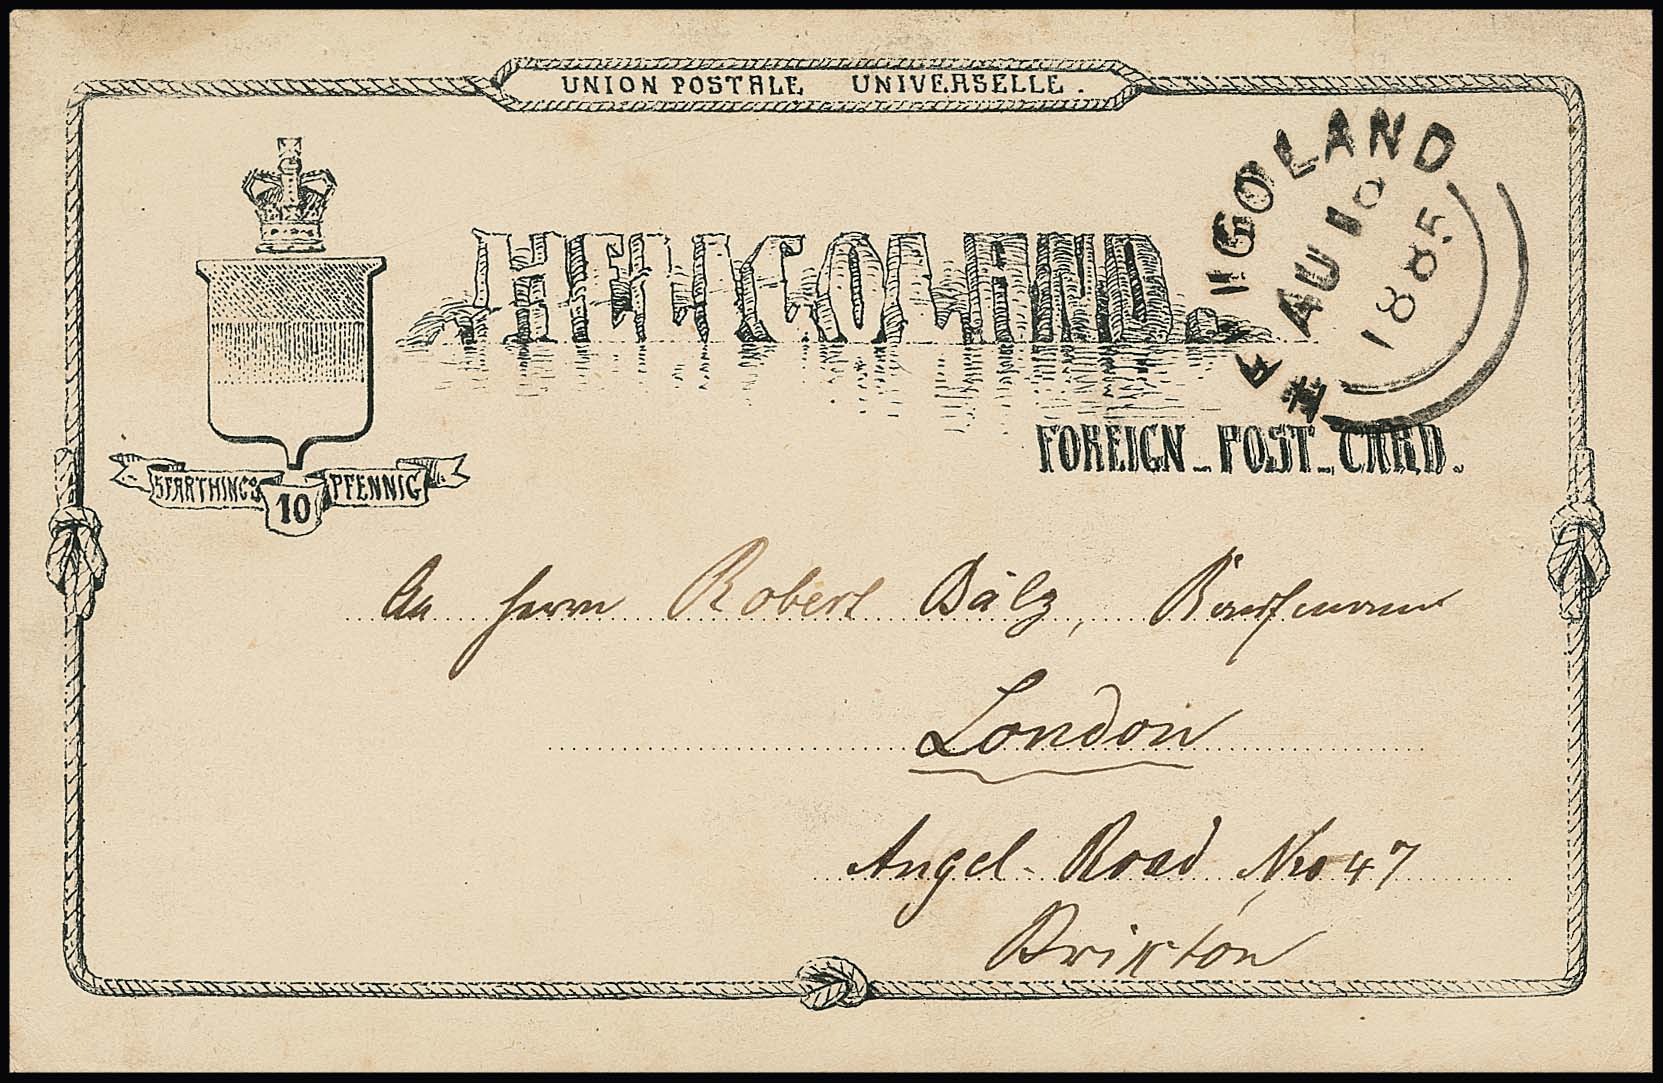 UNION POSTALE UNIVERSELLE.
HELIGOLAND
HELIGOLAND
AU 18
1885
FOREIGN - POST - CARD.
5 FARTHINGS 10 PFENNIG
An Herrn Robert Bälz, Kaufmann
London
Angel-Road Nro 47
Brixton